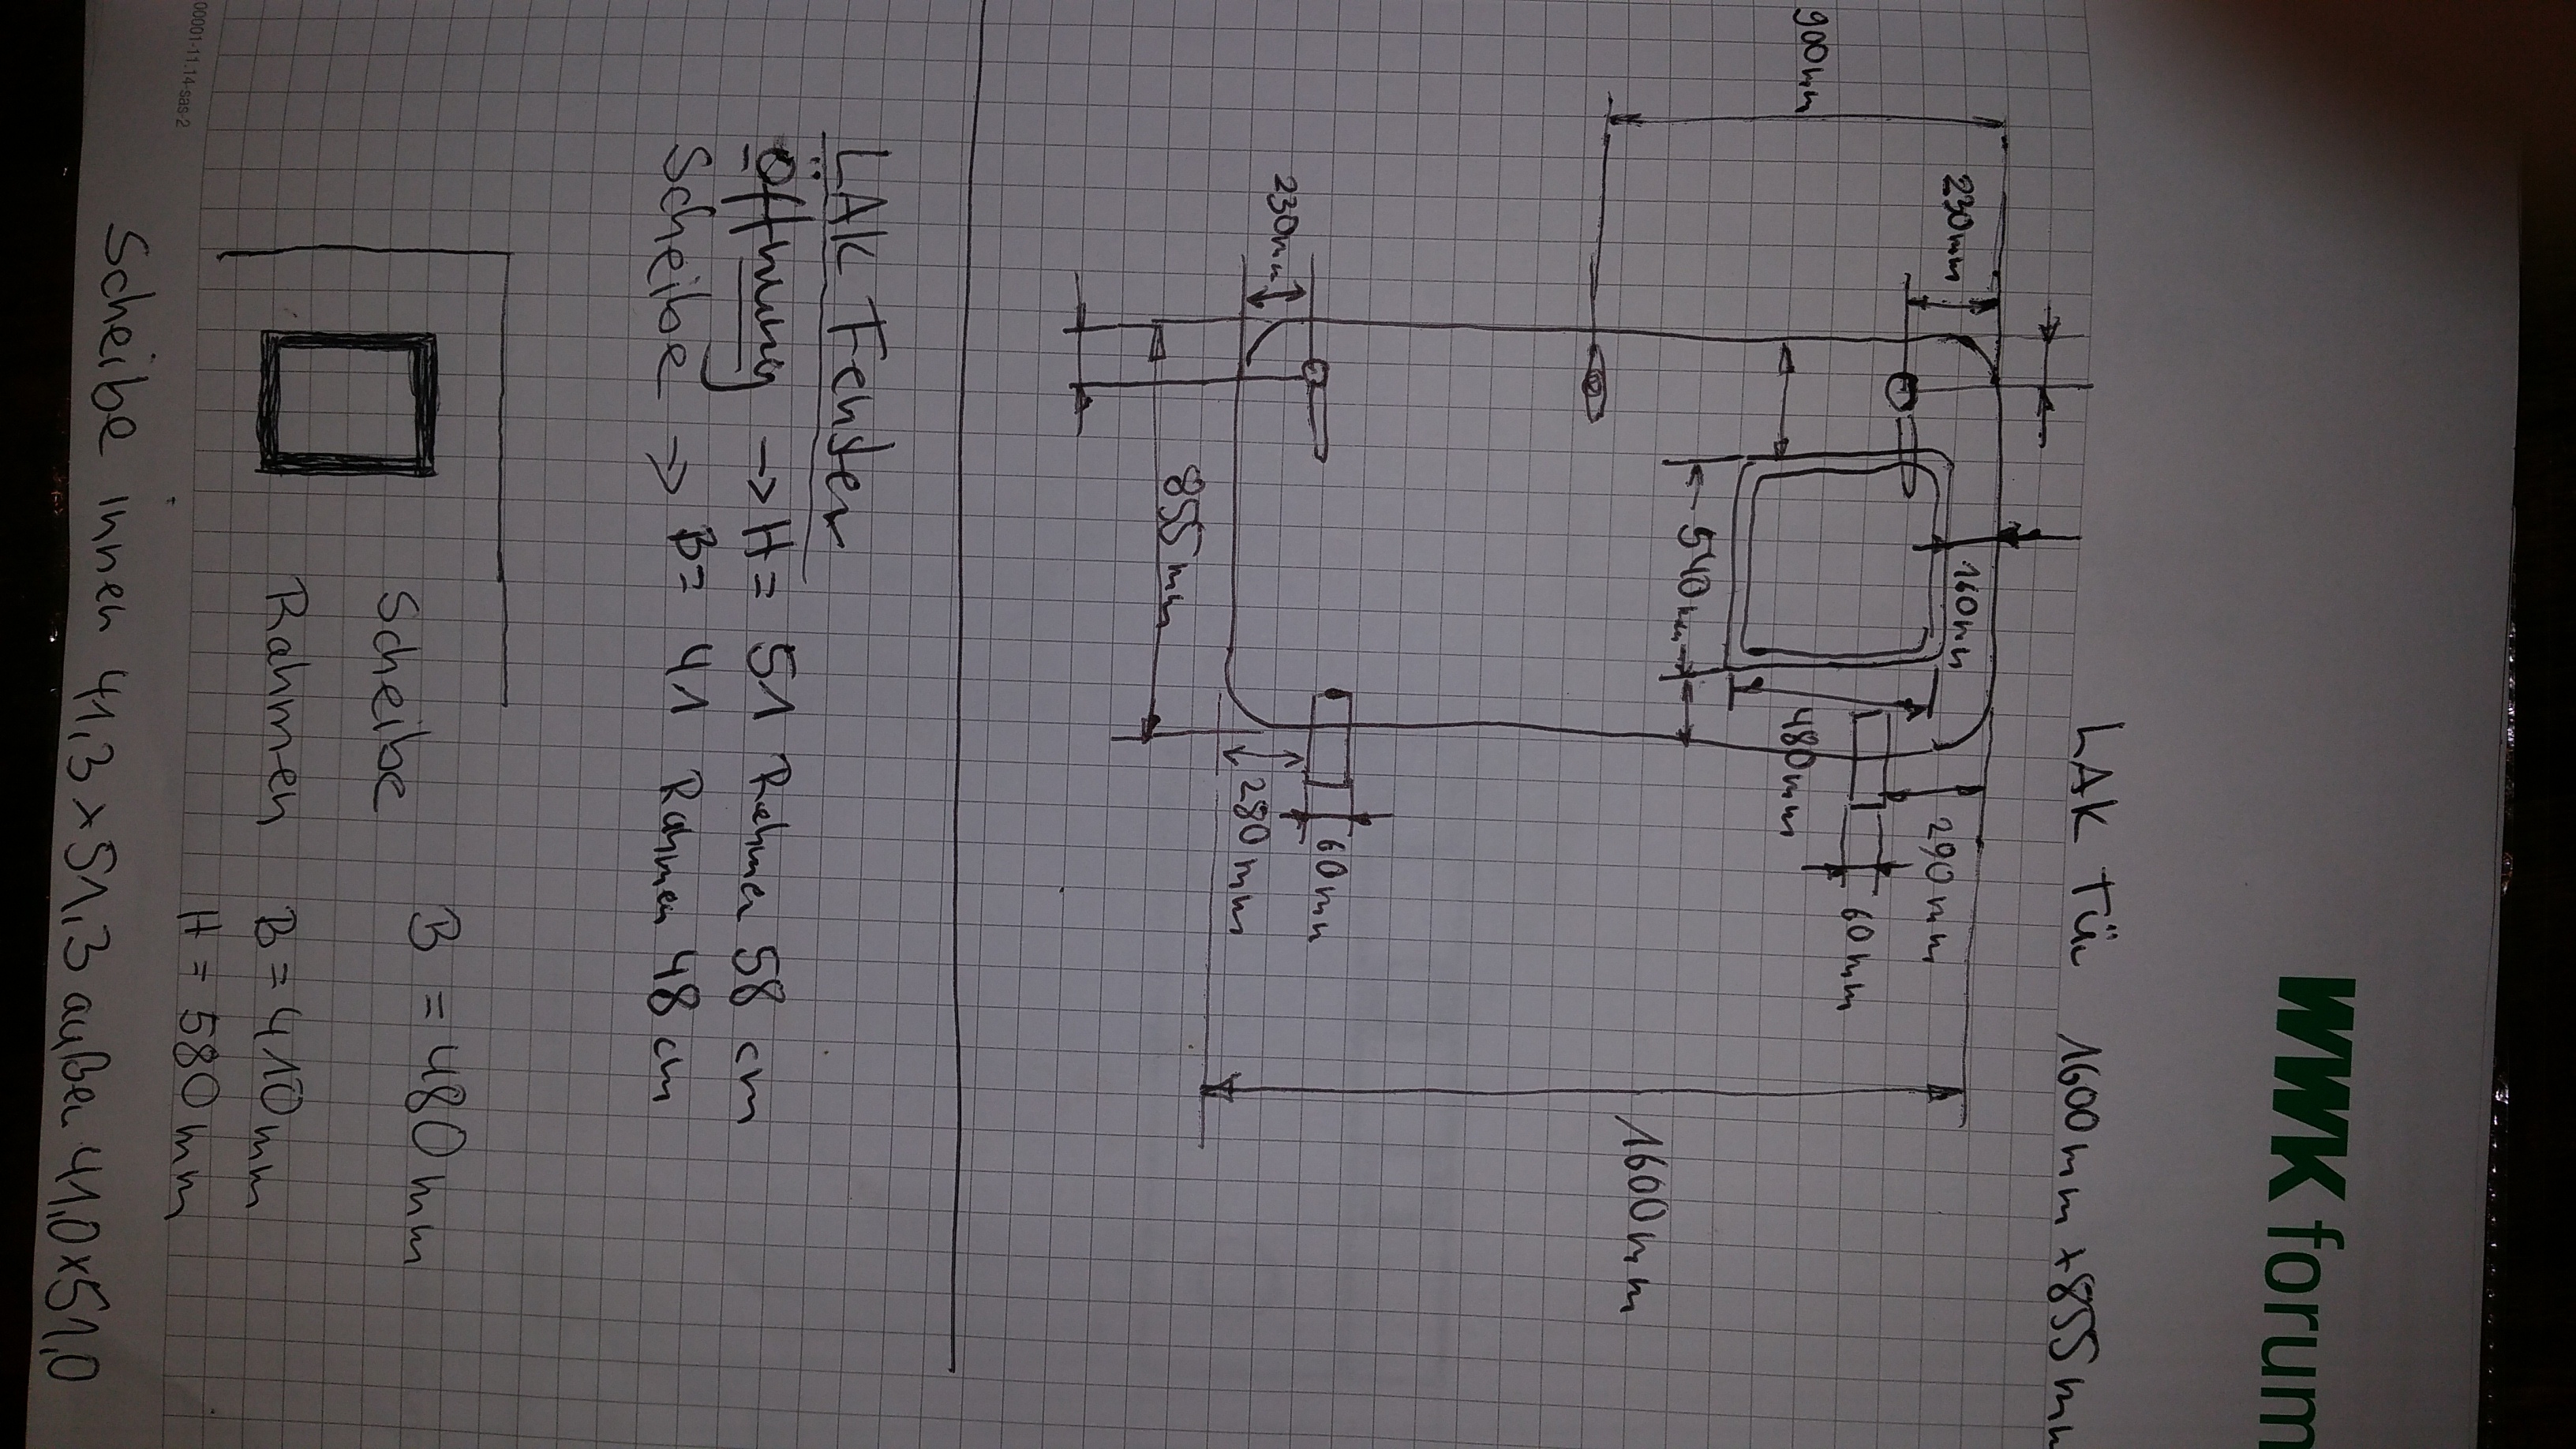 WWK forum
LAK Tür 1600mm x 855mm
900mm
230mm
160mm
290mm
60mm
480mm
540mm
1600mm
230mm
60mm
280mm
855mm
LAK Fenster
Öffnung → H = 51 Rahmen 58 cm
Scheibe → B = 41 Rahmen 48 cm
Scheibe B = 480mm
Rahmen B = 410mm
H = 580mm
Scheibe innen 41,3 x 51,3 außen 41,0 x 51,0
00001-11.14-sas-2